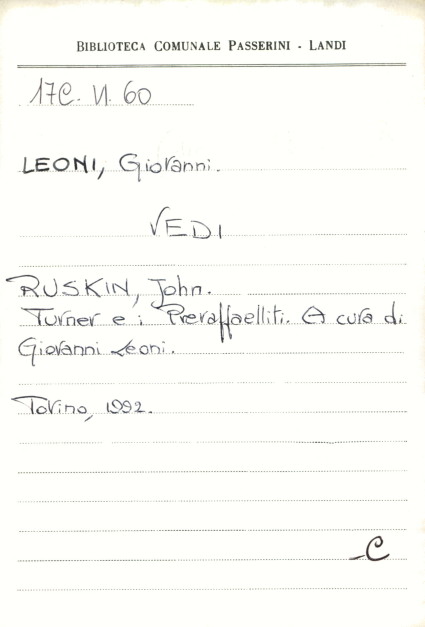 BIBLIOTECA COMUNALE PASSERINI - LANDI
17C. VI. 60
LEONI, Giovanni.
VEDI
RUSKIN, John.
Turner e i Preraffaelliti. A cura di
Giovanni Leoni.
Torino, 1992.
C